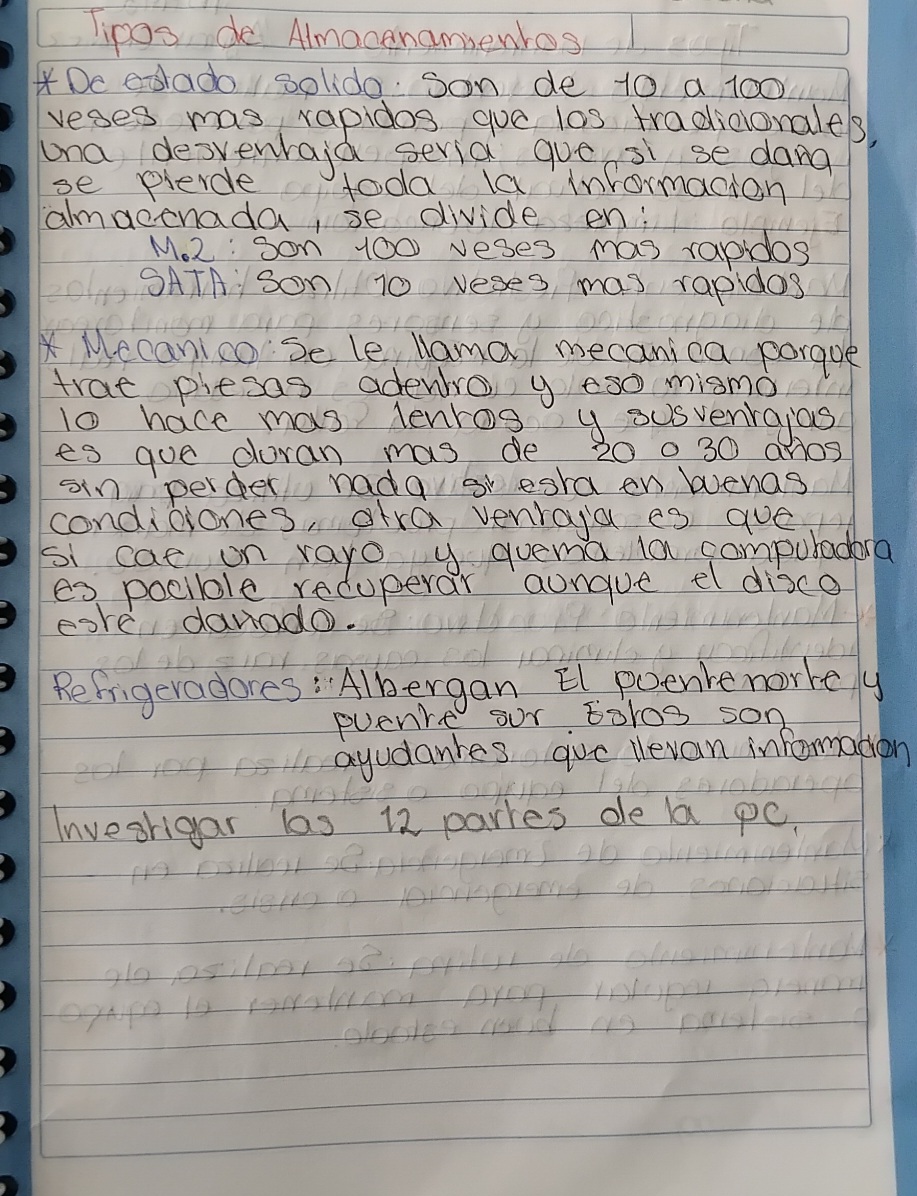 Tipos de Almacenamientos
* De estado solido: Son de 10 a 100
veses mas rapidos que los tradicionales,
una desventaja seria que si se daña
se pierde toda la informacion
almacenada, se divide en:
M.2: Son 100 veses mas rapidos
SATA: Son 10 veses mas rapidos
* Mecanico: Se le llama mecanica porque
trae piesas adentro y eso mismo
lo hace mas lentos y sus ventajas
es que duran mas de 20 o 30 años
sin perder nada si esta en buenas
condiciones, otra ventaja es que
si cae un rayo y quema la computadora
es pocible recuperar aunque el disco
este danado.
Refrigeradores: Albergan El puente norte y
puente sur Estos son
ayudantes que llevan informacion
Investigar las 12 partes de la pc.